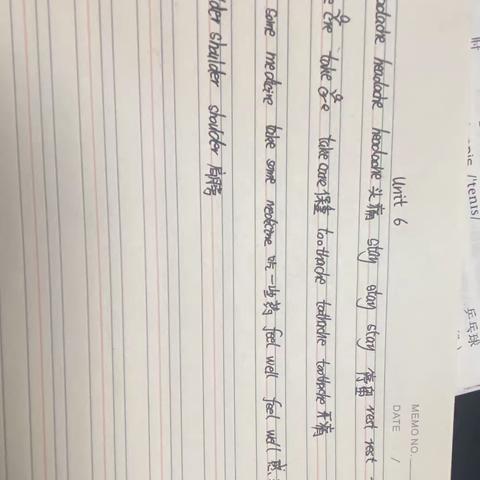 MEMO NO.
DATE /
Unit 6
headache headache 头痛 stay stay stay 停留 rest rest
take care take care 保重 toothache toothache toothache 牙痛
some medicine take some medicine 吃一些药 feel well feel well
shoulder shoulder 肩膀
/'tenɪs/
乒乓球